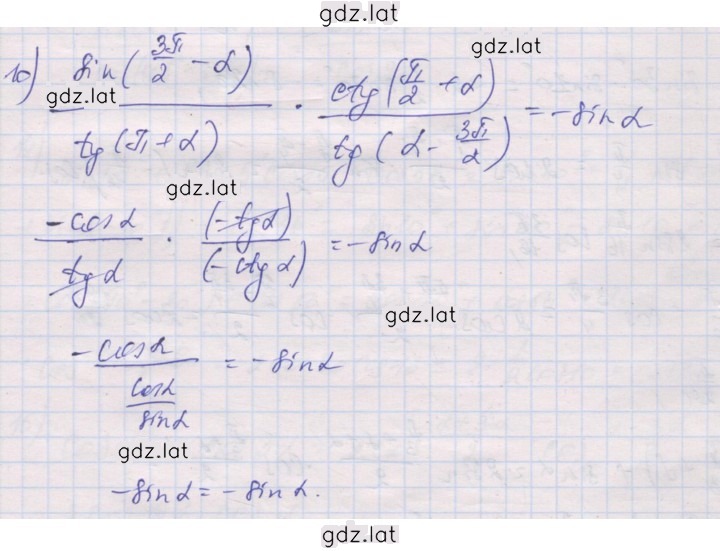 gdz.lat
10) sin(3π/2 - α) / tg(π + α) · ctg(π/2 + α) / tg(α - 3π/2) = -sin α
gdz.lat
gdz.lat
-cos α / tg α · (-tg α) / (-ctg α) = -sin α
gdz.lat
gdz.lat
-cos α / (cos α / sin α) = -sin α
gdz.lat
-sin α = -sin α.
gdz.lat